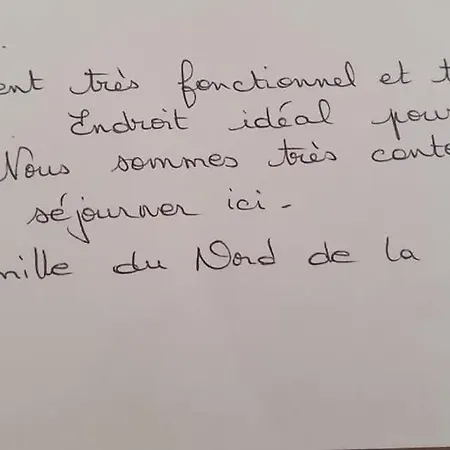 ent très fonctionnel et t
Endroit idéal pour
Nous sommes très conte
séjourner ici -
mille du Nord de la